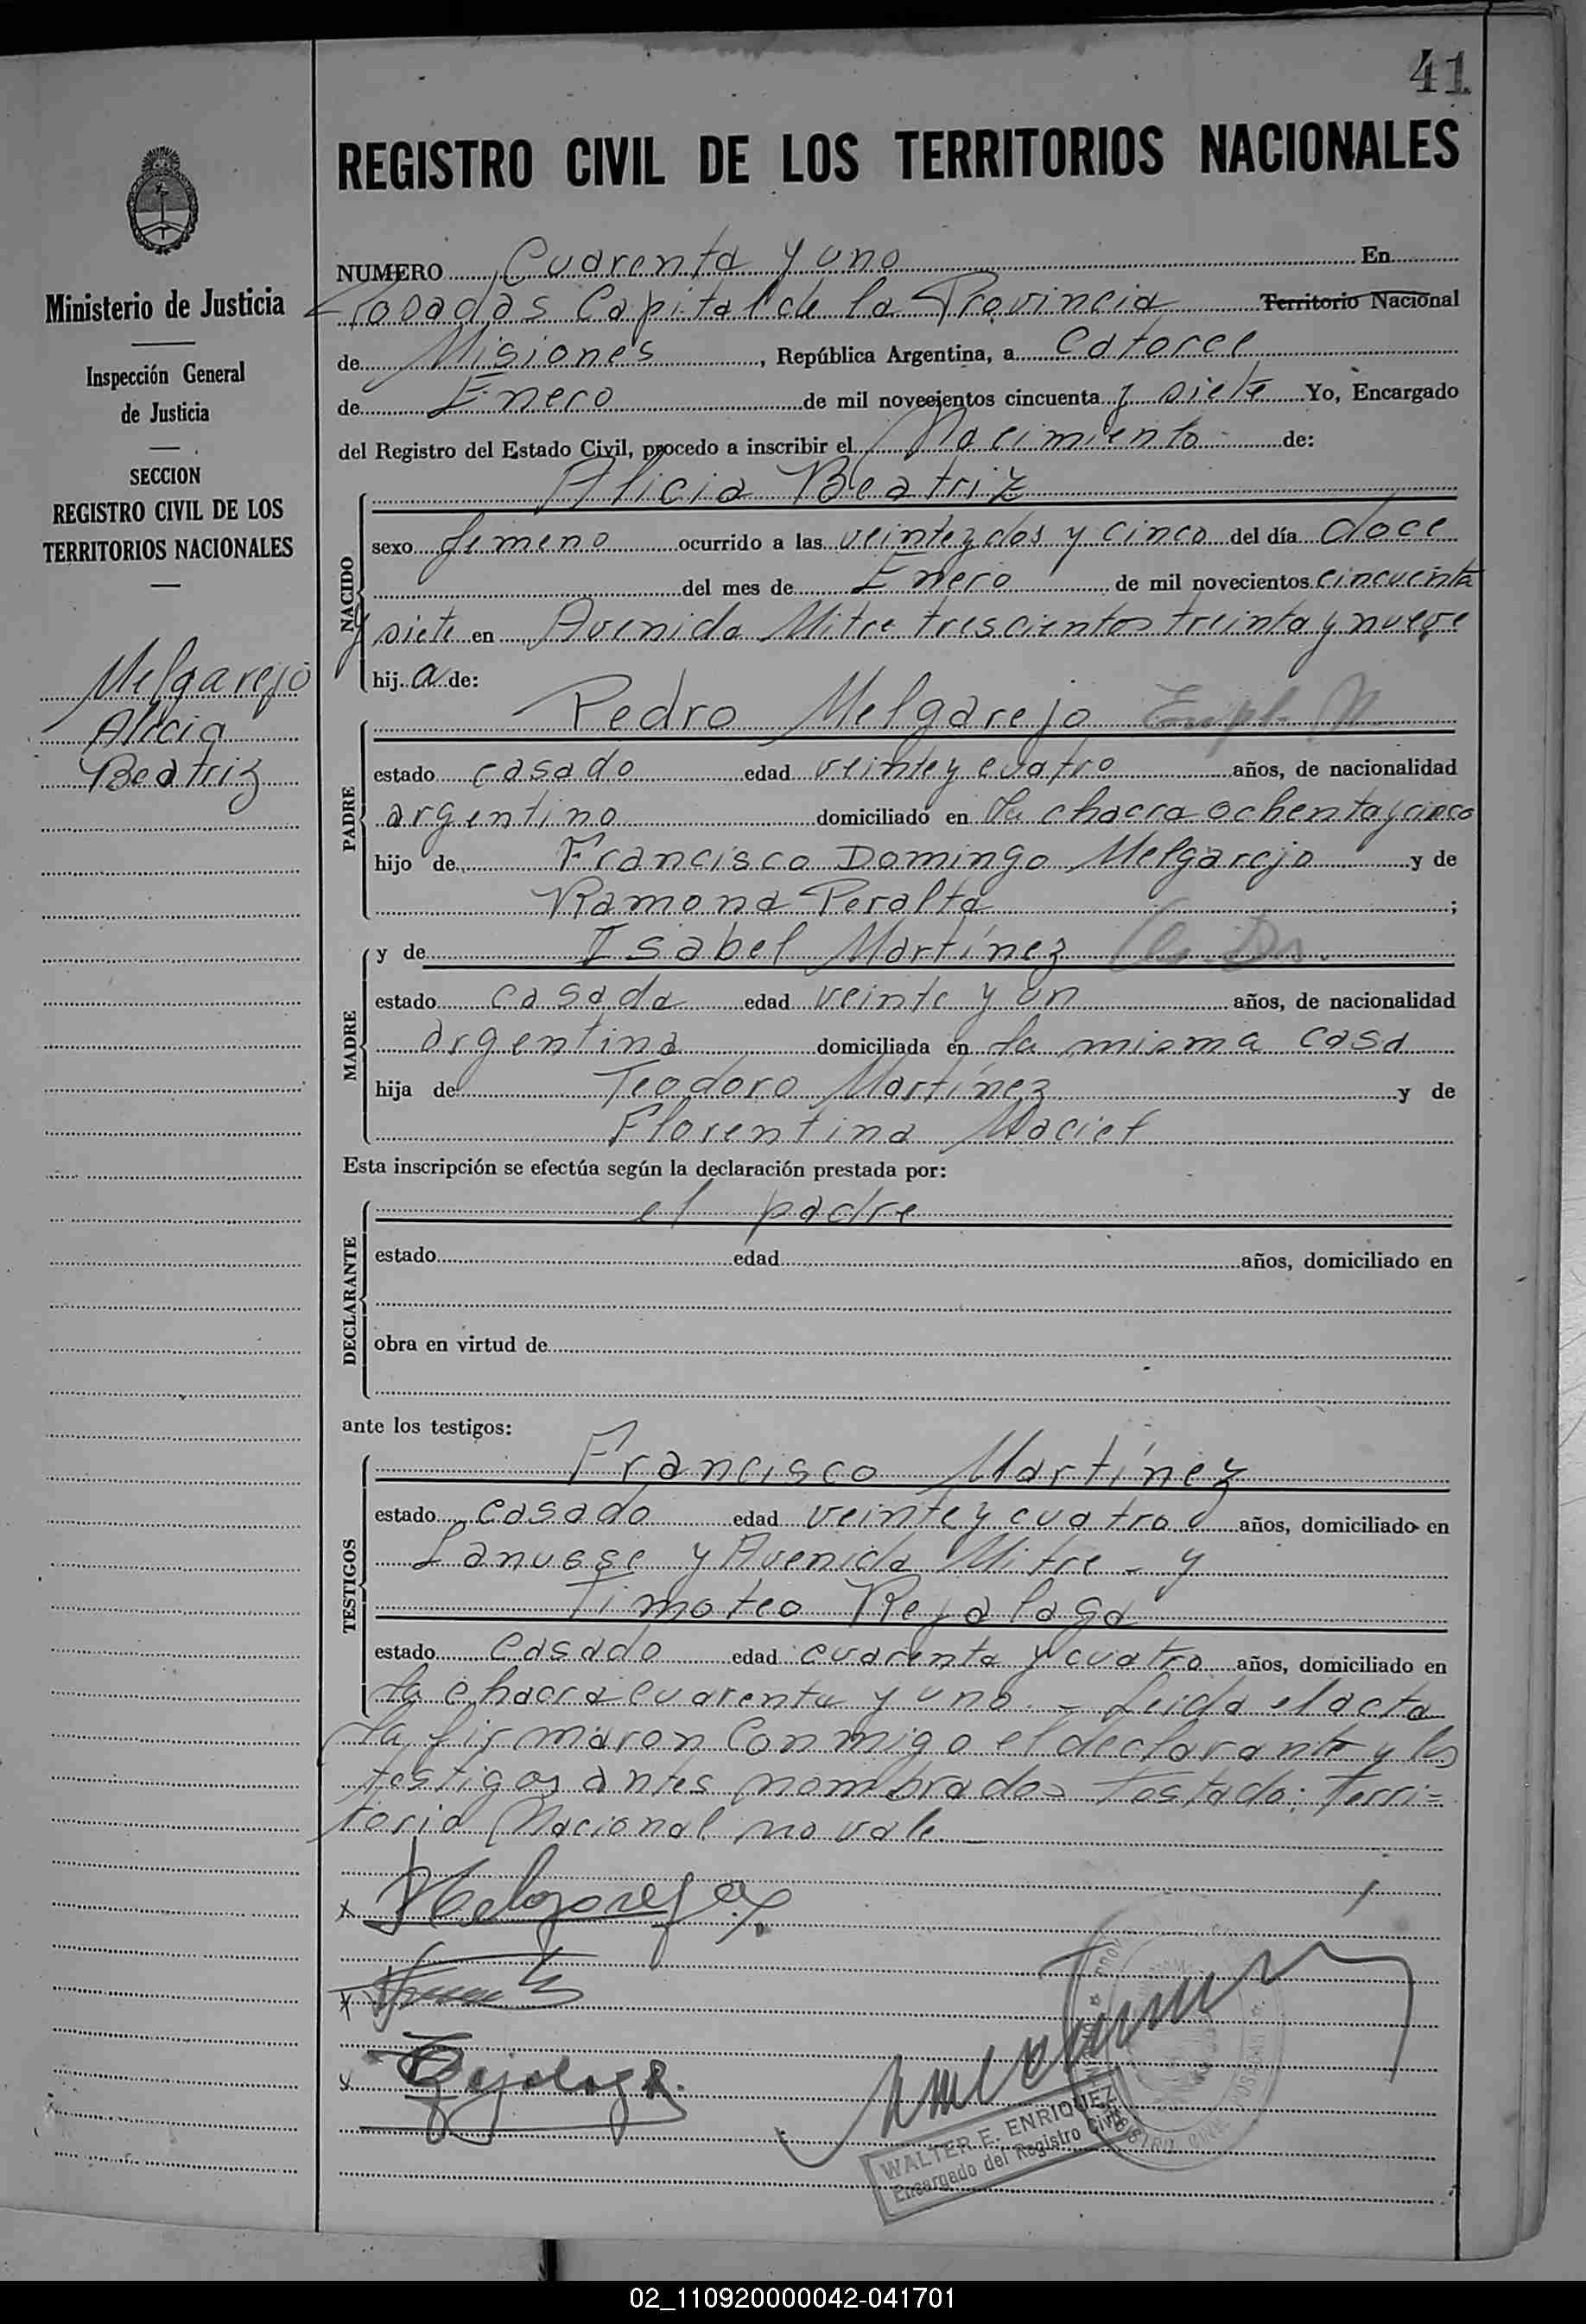 41
REGISTRO CIVIL DE LOS TERRITORIOS NACIONALES
Ministerio de Justicia
Inspección General
de Justicia
SECCION
REGISTRO CIVIL DE LOS
TERRITORIOS NACIONALES
Melgarejo
Alicia
Beatriz
NUMERO Cuarenta y uno En
Posadas Capital de la Provincia Territorio Nacional
de Misiones, República Argentina, a catorce
de Enero de mil novecientos cincuenta y siete Yo, Encargado
del Registro del Estado Civil, procedo a inscribir el Nacimiento de:
NACIDO
Alicia Beatriz
sexo femeno ocurrido a las veinte y dos y cinco del día doce
del mes de Enero de mil novecientos cincuenta
y siete en Avenida Mitre trescientos treinta y nueve
hija de:
PADRE
Pedro Melgarejo Empl. N
estado casado edad veinte y cuatro años, de nacionalidad
argentino domiciliado en la chacra ochenta y cinco
hijo de Francisco Domingo Melgarejo y de
Ramona Peralta;
MADRE
y de Isabel Martínez
estado casada edad veinte y un años, de nacionalidad
argentina domiciliada en la misma casa
hija de Teodoro Martínez y de
Florentina Maciel
Esta inscripción se efectúa según la declaración prestada por:
DECLARANTE
el padre
estado edad años, domiciliado en
obra en virtud de
ante los testigos:
TESTIGOS
Francisco Martínez
estado casado edad veinte y cuatro años, domiciliado en
Lanusse y Avenida Mitre - y
Timoteo Rejalaga
estado casado edad cuarenta y cuatro años, domiciliado en
la chacra cuarenta y uno. - Leida el acta
la firmaron conmigo el declarante y los
testigos antes nombrados Testado: Terri=
torio Nacional no vale.
x Melgarejo
x
x Rejalaga
WALTER E. ENRIQUEZ
Encargado del Registro Civil
02_110920000042-041701